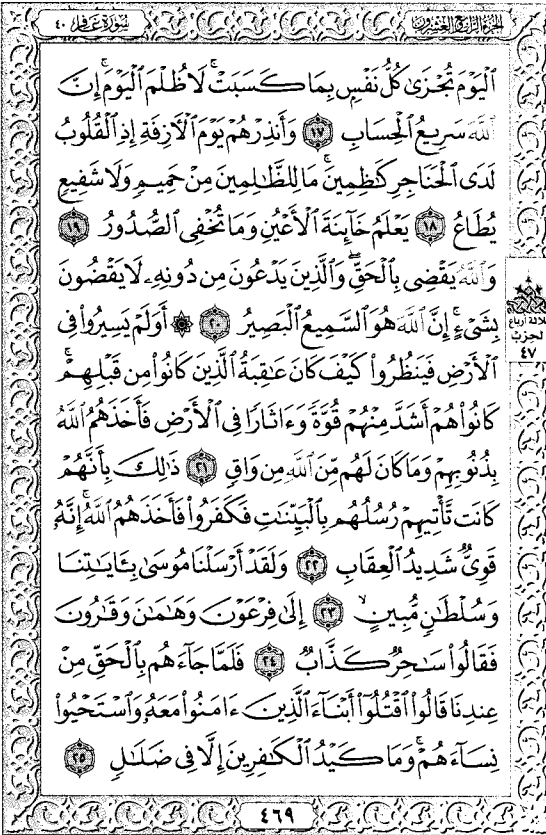 سُورَةُ غَافِرٍ ٤٠
الجزءُ الرَّابِعُ والعِشْرُونَ
ٱلْيَوْمَ تُجْزَىٰ كُلُّ نَفْسٍۭ بِمَا كَسَبَتْ ۚ لَا ظُلْمَ ٱلْيَوْمَ ۚ إِنَّ
ٱللَّهَ سَرِيعُ ٱلْحِسَابِ ١٧ وَأَنذِرْهُمْ يَوْمَ ٱلْـَٔازِفَةِ إِذِ ٱلْقُلُوبُ
لَدَى ٱلْحَنَاجِرِ كَـٰظِمِينَ ۚ مَا لِلظَّـٰلِمِينَ مِنْ حَمِيمٍ وَلَا شَفِيعٍ
يُطَاعُ ١٨ يَعْلَمُ خَآئِنَةَ ٱلْأَعْيُنِ وَمَا تُخْفِى ٱلصُّدُورُ ١٩
وَٱللَّهُ يَقْضِى بِٱلْحَقِّ ۖ وَٱلَّذِينَ يَدْعُونَ مِن دُونِهِۦ لَا يَقْضُونَ
بِشَىْءٍ ۗ إِنَّ ٱللَّهَ هُوَ ٱلسَّمِيعُ ٱلْبَصِيرُ ٢٠ ۞ أَوَلَمْ يَسِيرُوا۟ فِى
ٱلْأَرْضِ فَيَنظُرُوا۟ كَيْفَ كَانَ عَـٰقِبَةُ ٱلَّذِينَ كَانُوا۟ مِن قَبْلِهِمْ ۚ
كَانُوا۟ هُمْ أَشَدَّ مِنْهُمْ قُوَّةً وَءَاثَارًا فِى ٱلْأَرْضِ فَأَخَذَهُمُ ٱللَّهُ
بِذُنُوبِهِمْ وَمَا كَانَ لَهُم مِّنَ ٱللَّهِ مِن وَاقٍ ٢١ ذَٰلِكَ بِأَنَّهُمْ
كَانَت تَّأْتِيهِمْ رُسُلُهُم بِٱلْبَيِّنَـٰتِ فَكَفَرُوا۟ فَأَخَذَهُمُ ٱللَّهُ ۚ إِنَّهُۥ
قَوِىٌّ شَدِيدُ ٱلْعِقَابِ ٢٢ وَلَقَدْ أَرْسَلْنَا مُوسَىٰ بِـَٔايَـٰتِنَا
وَسُلْطَـٰنٍ مُّبِينٍ ٢٣ إِلَىٰ فِرْعَوْنَ وَهَـٰمَـٰنَ وَقَـٰرُونَ
فَقَالُوا۟ سَـٰحِرٌ كَذَّابٌ ٢٤ فَلَمَّا جَآءَهُم بِٱلْحَقِّ مِنْ
عِندِنَا قَالُوا۟ ٱقْتُلُوٓا۟ أَبْنَآءَ ٱلَّذِينَ ءَامَنُوا۟ مَعَهُۥ وَٱسْتَحْيُوا۟
نِسَآءَهُمْ ۚ وَمَا كَيْدُ ٱلْكَـٰفِرِينَ إِلَّا فِى ضَلَـٰلٍ ٢٥
ثلاثة أرباع
الحزب
٤٧
٤٦٩